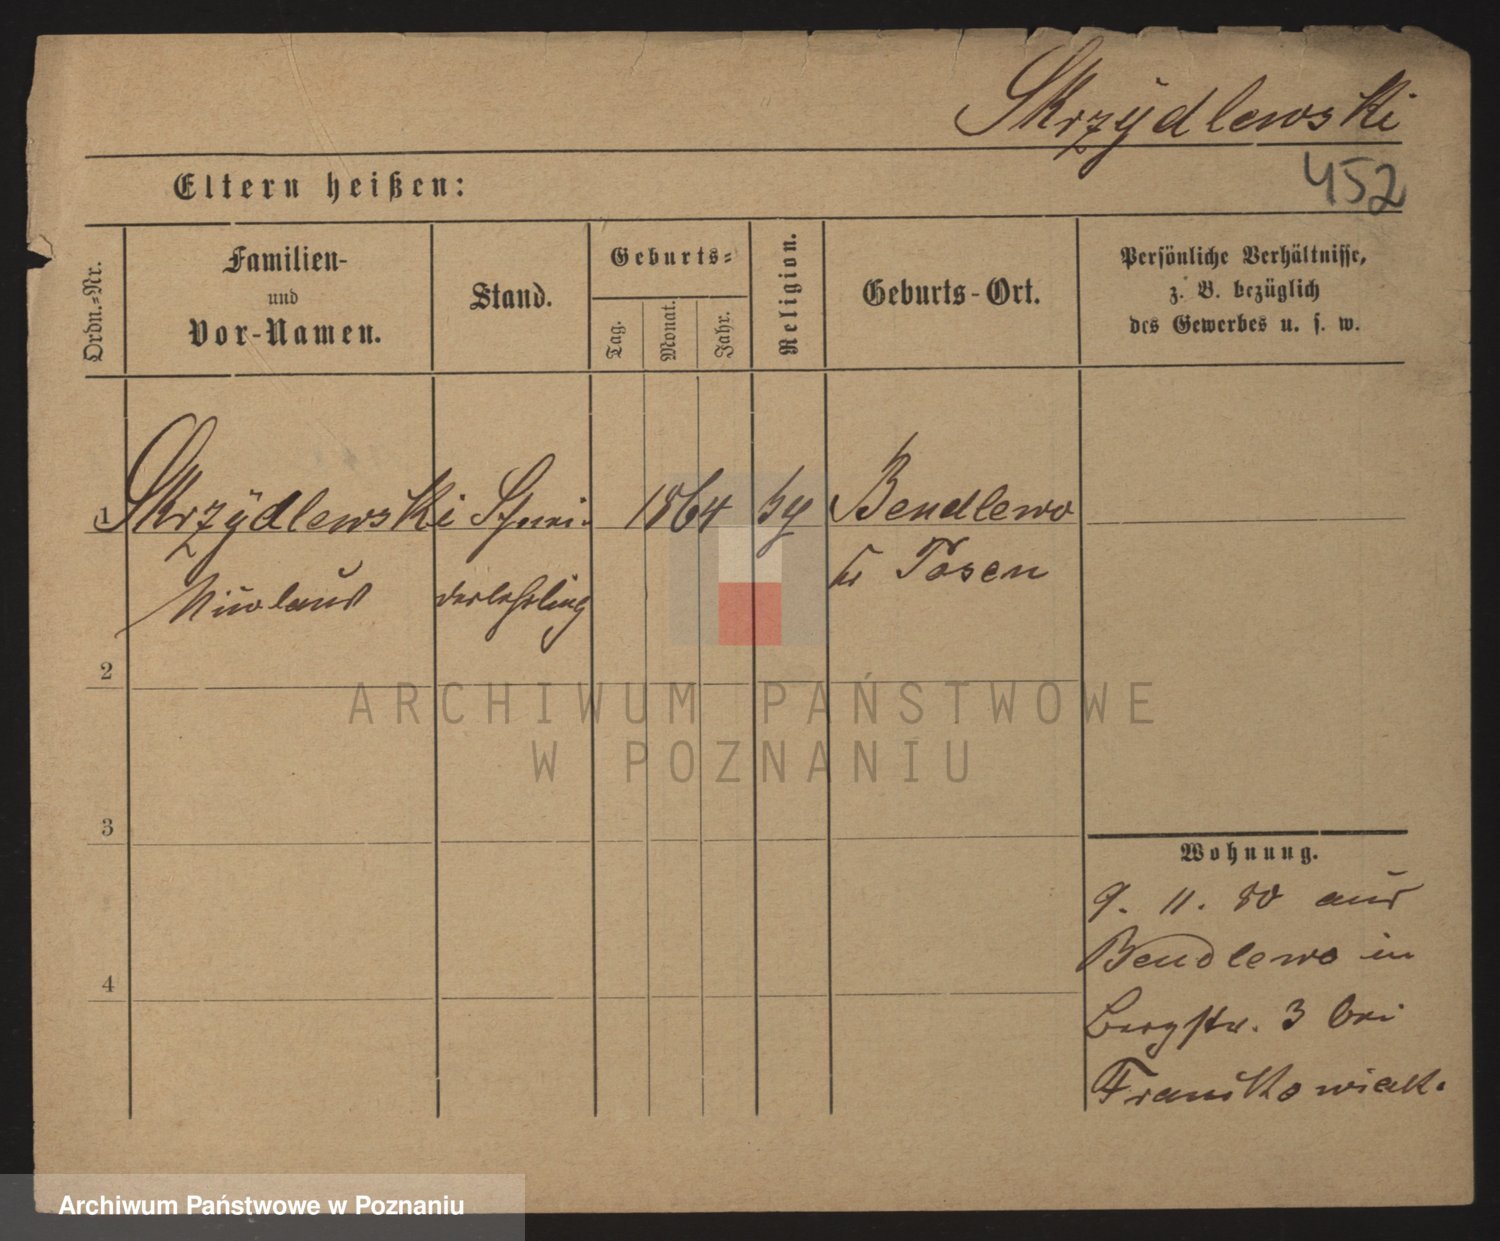 Skrzydlewski
452
Eltern heißen:
Ordn.-Nr.
Familien-
und
Vor-Namen.
Stand.
Geburts-
Tag.
Monat.
Jahr.
Religion.
Geburts-Ort.
Persönliche Verhältnisse,
z. B. bezüglich
des Gewerbes u. s. w.
1 Skrzydlewski Schnei- 1864 Bendlewo
Nicolaus derlehrling Posen
2
3
4
Wohnung.
9. 11. 80 aus
Bendlewo in
Bergstr. 3 bei
ARCHIWUM PAŃSTWOWE
W POZNANIU
Archiwum Państwowe w Poznaniu